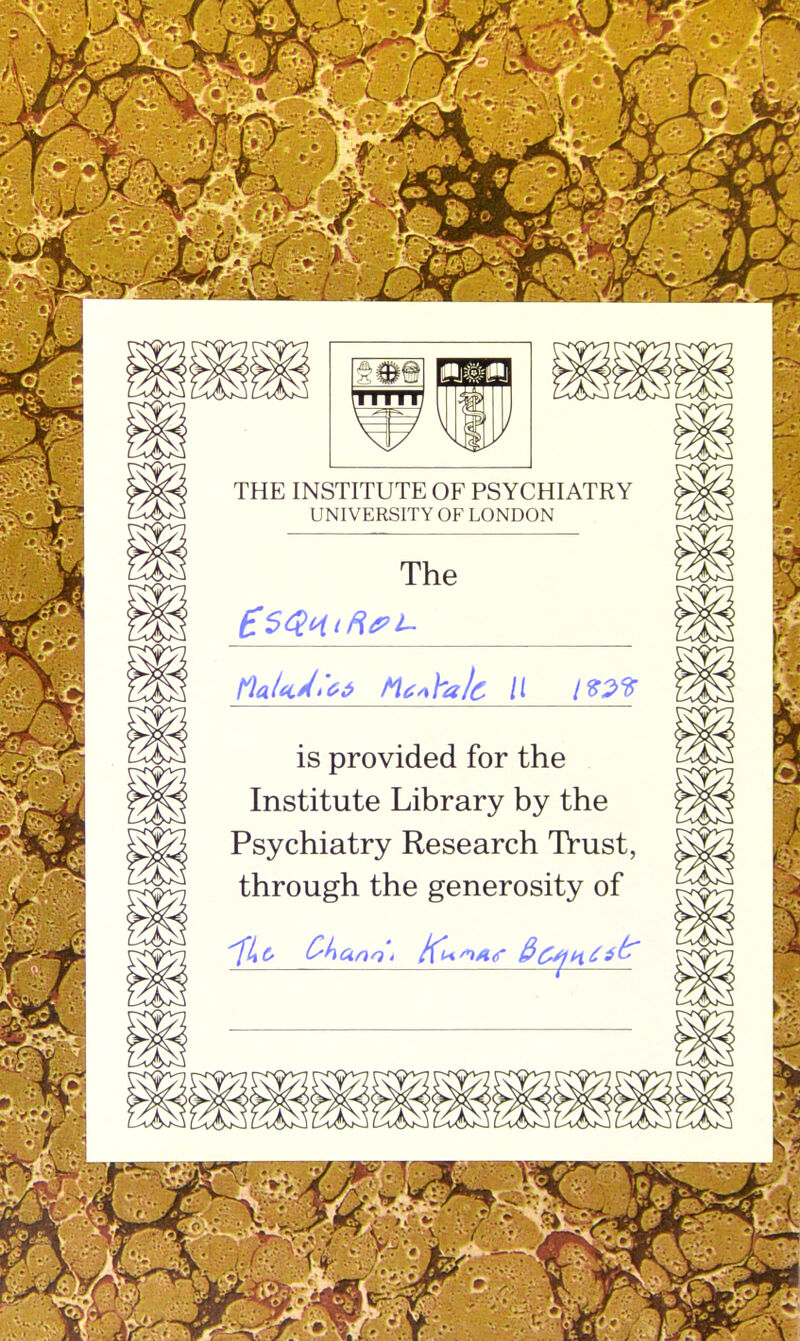 THE INSTITUTE OF PSYCHIATRY
UNIVERSITY OF LONDON
The
ESQUIROL
Maladies Mentale II 1838
is provided for the
Institute Library by the
Psychiatry Research Trust,
through the generosity of
The Channi Kumar Bequest